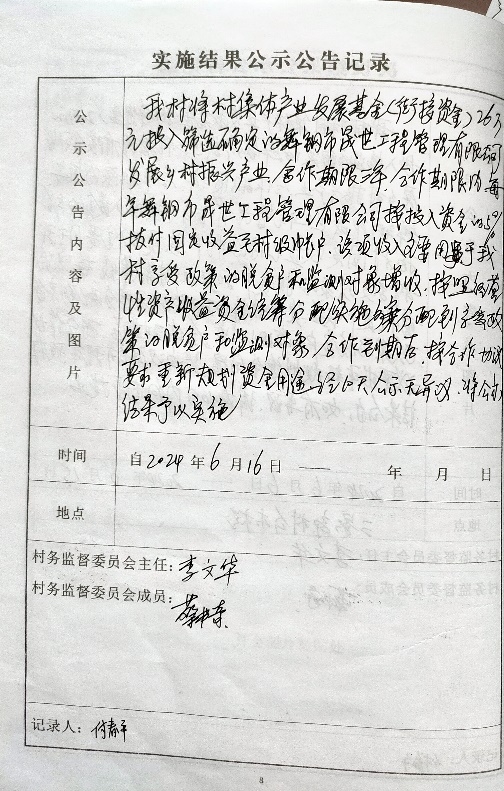 实施结果公示公告记录
公示公告内容及图片
我村将村集体产业发展基金（衔接资金）26万
元投入筛选确定的舞钢市晟世工程管理有限公司
发展乡村振兴产业，合作期限三年，合作期限内，每
年舞钢市晟世工程管理有限公司按投入资金的5%
拨付固定收益至村级账户，该项收入主要用于我
村享受政策的脱贫户和监测对象增收，按照经营
性资产收益资金统筹分配实施方案分配到享受政
策的脱贫户和监测对象，合作到期后，按合作协议
要求重新规划资金用途，经10天公示无异议，将公示
结果予以实施
时间 自2024年6月16日 —— 年 月 日
地点
村务监督委员会主任：李文华
村务监督委员会成员：
记录人：付春平
8